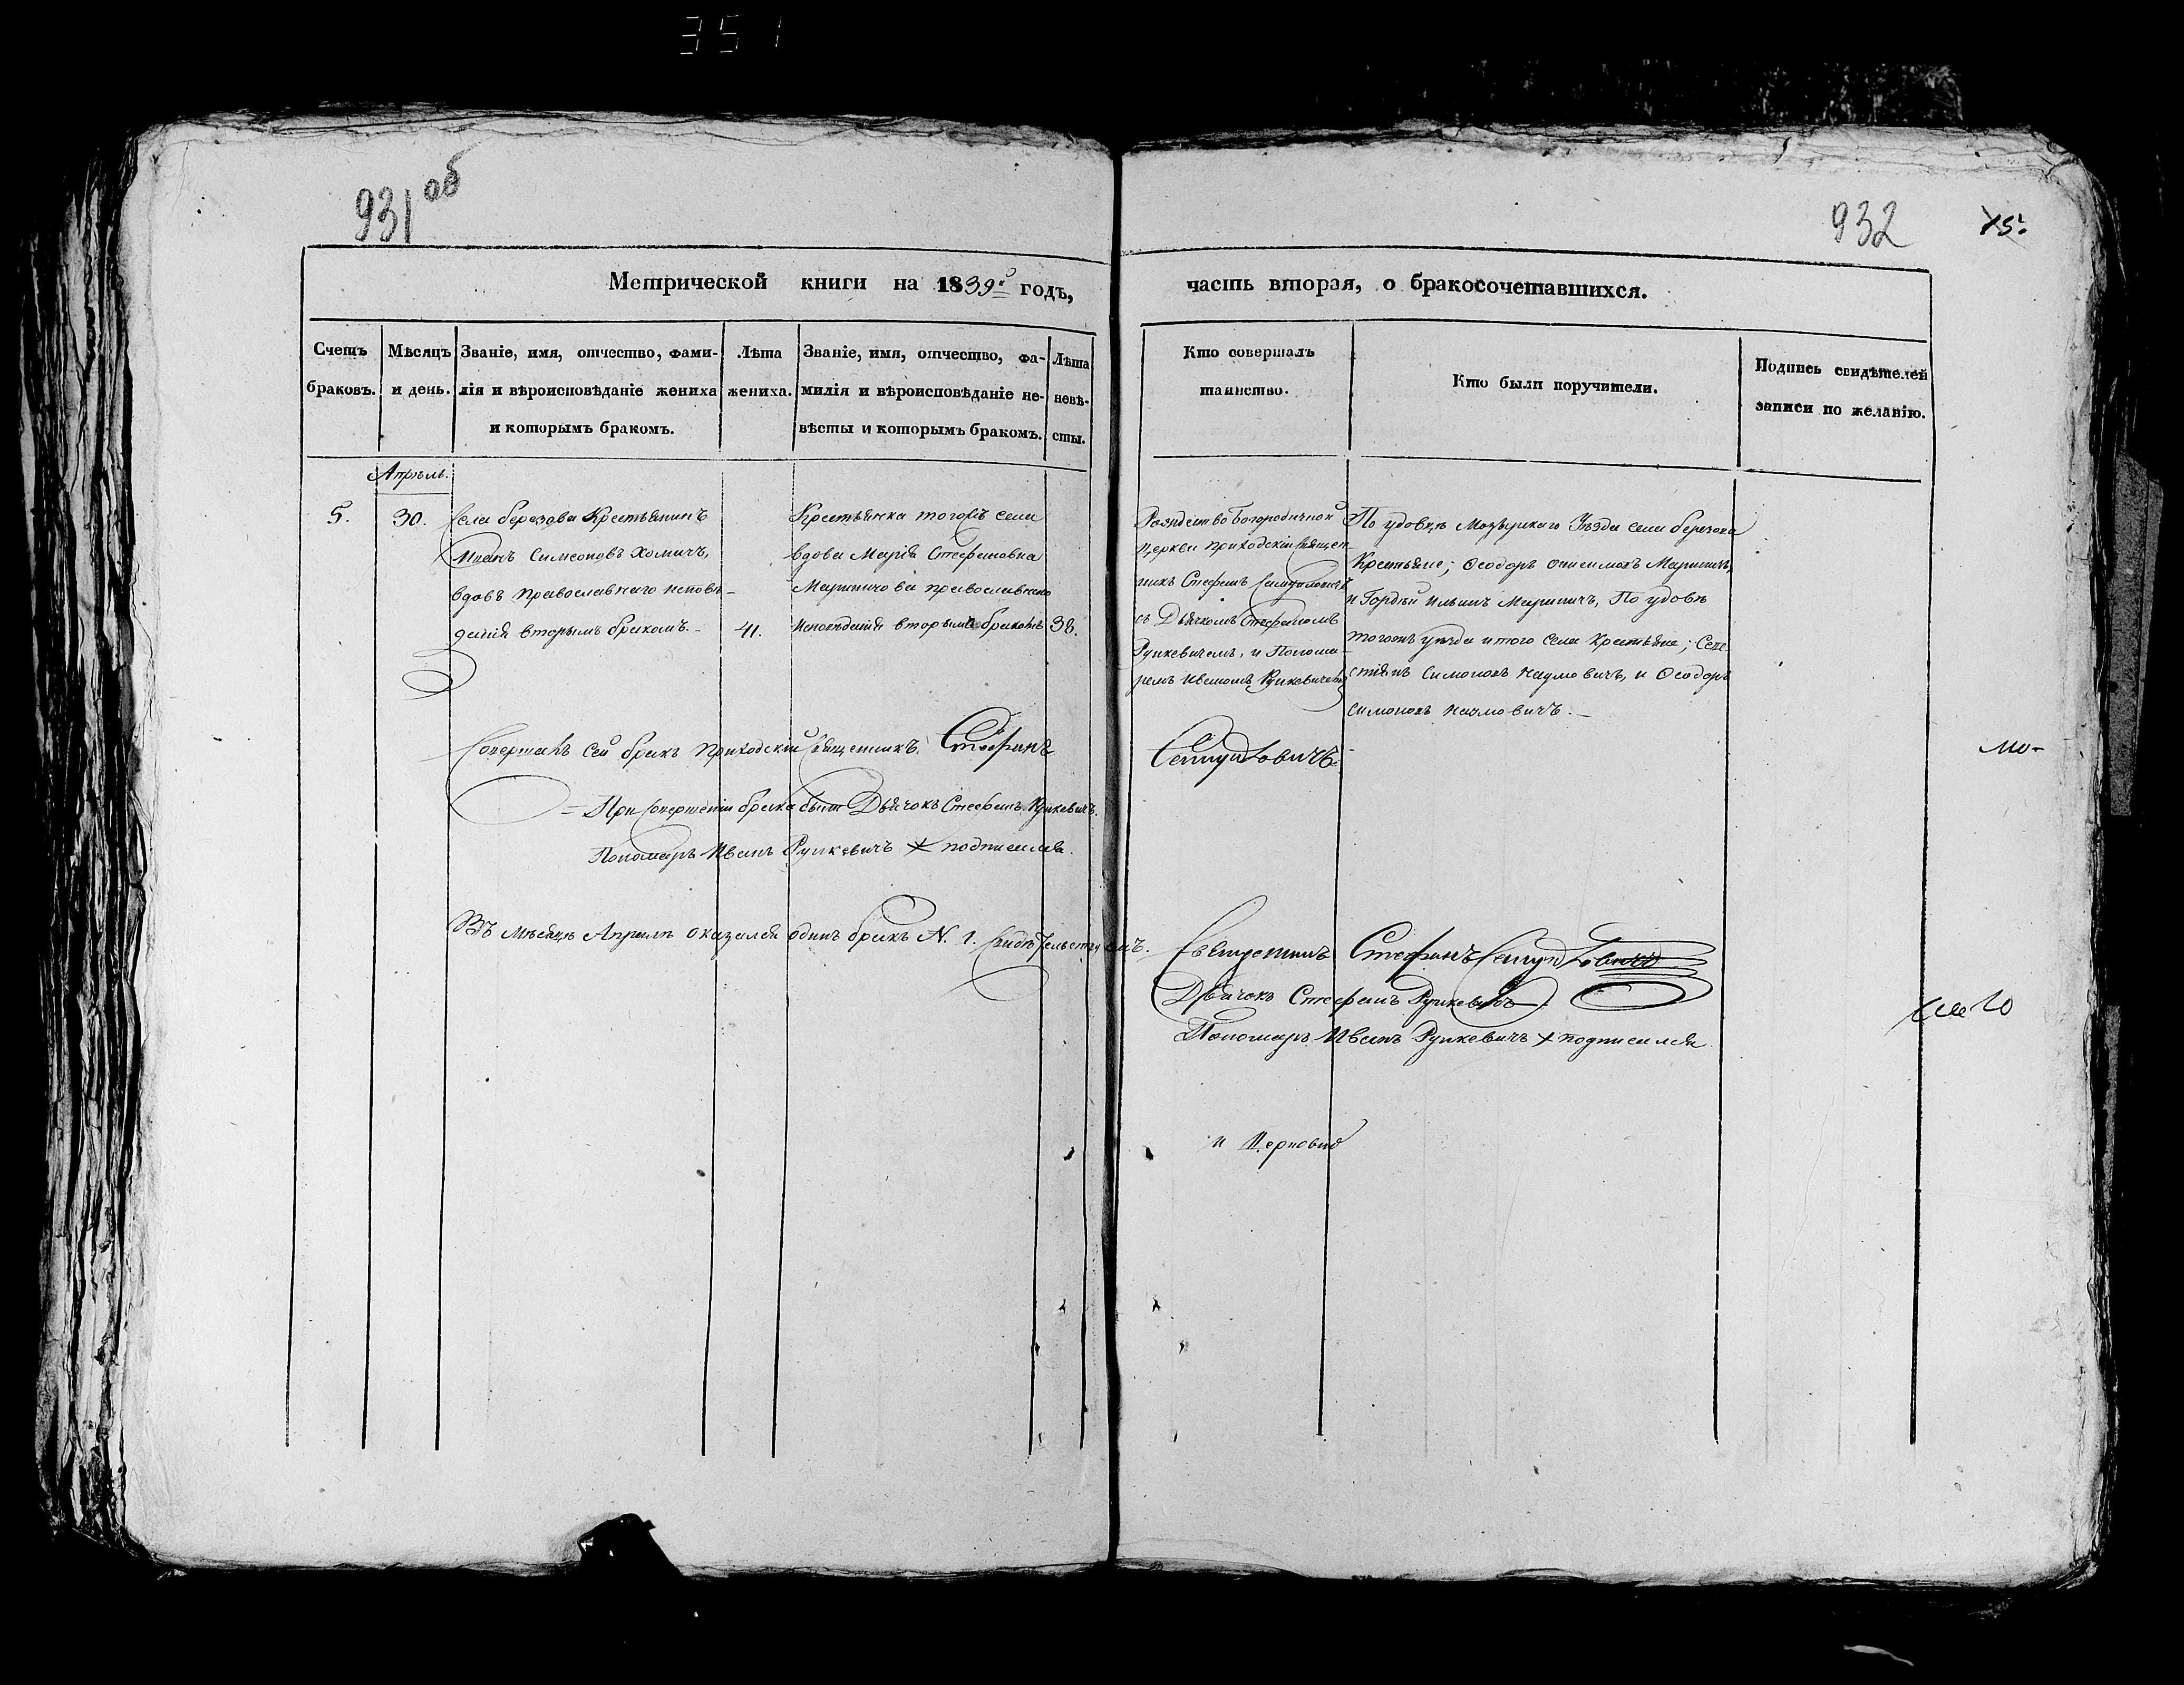 351
931 об
932
15.
Метрической книги на 1839й годъ,
часть вторая, о бракосочетавшихся.
Счетъ
браковъ.
Мѣсяцъ
и день.
Званіе, имя, отчество, фами-
лія и вѣроисповѣданіе жениха
и которымъ бракомъ.
Лѣта
жениха.
Званіе, имя, отчество, фа-
милія и вѣроисповѣданіе не-
вѣсты и которымъ бракомъ.
Лѣта
невѣ-
сты.
Кто совершалъ
таинство.
Кто были поручители.
Подпись свидѣтелей
записи по желанію.
Апрѣль.
5.
30.
Села березова Крестьянинъ
Иванъ Симеоновъ Хомичъ,
вдовъ православнаго исповѣ-
данія вторымъ бракомъ.
41.
Крестьянка тогожъ села
вдова Марія Стефановна
Мариничова православнаго
исповѣданія вторымъ бракомъ
38.
Рождество Богородичной
церкви приходскій Священ-
никъ Стефанъ
съ Дьячкомъ Стефаномъ
Рункевичемъ, и Понома-
ремъ Иваномъ Рункевичемъ
По удовцѣ Мозырскаго Уѣзда села березова
Крестьяне; Феодоръ Мариничъ,
и Гордѣй Ильинъ Мариничъ, По удовѣ
тогожъ уѣзда и того села Крестьяне; Сева-
стіянъ Симоновъ Наумовичъ, и Феодоръ
Симоновъ Наумовичъ.
Совершалъ сей бракъ приходскій Священникъ Стефанъ
При совершеніи брака былъ Дьячокъ Стефанъ Рункевичъ.
Пономарь Иванъ Рункевичъ + подписался.
мо-
Въ мѣсяцѣ Апрѣлѣ оказался одинъ бракъ N. 1. Свидѣтельствуемъ.
Священникъ Стефанъ
Дьячокъ Стефанъ Рункевичъ
Пономарь Иванъ Рункевичъ + подписался
и Церковно